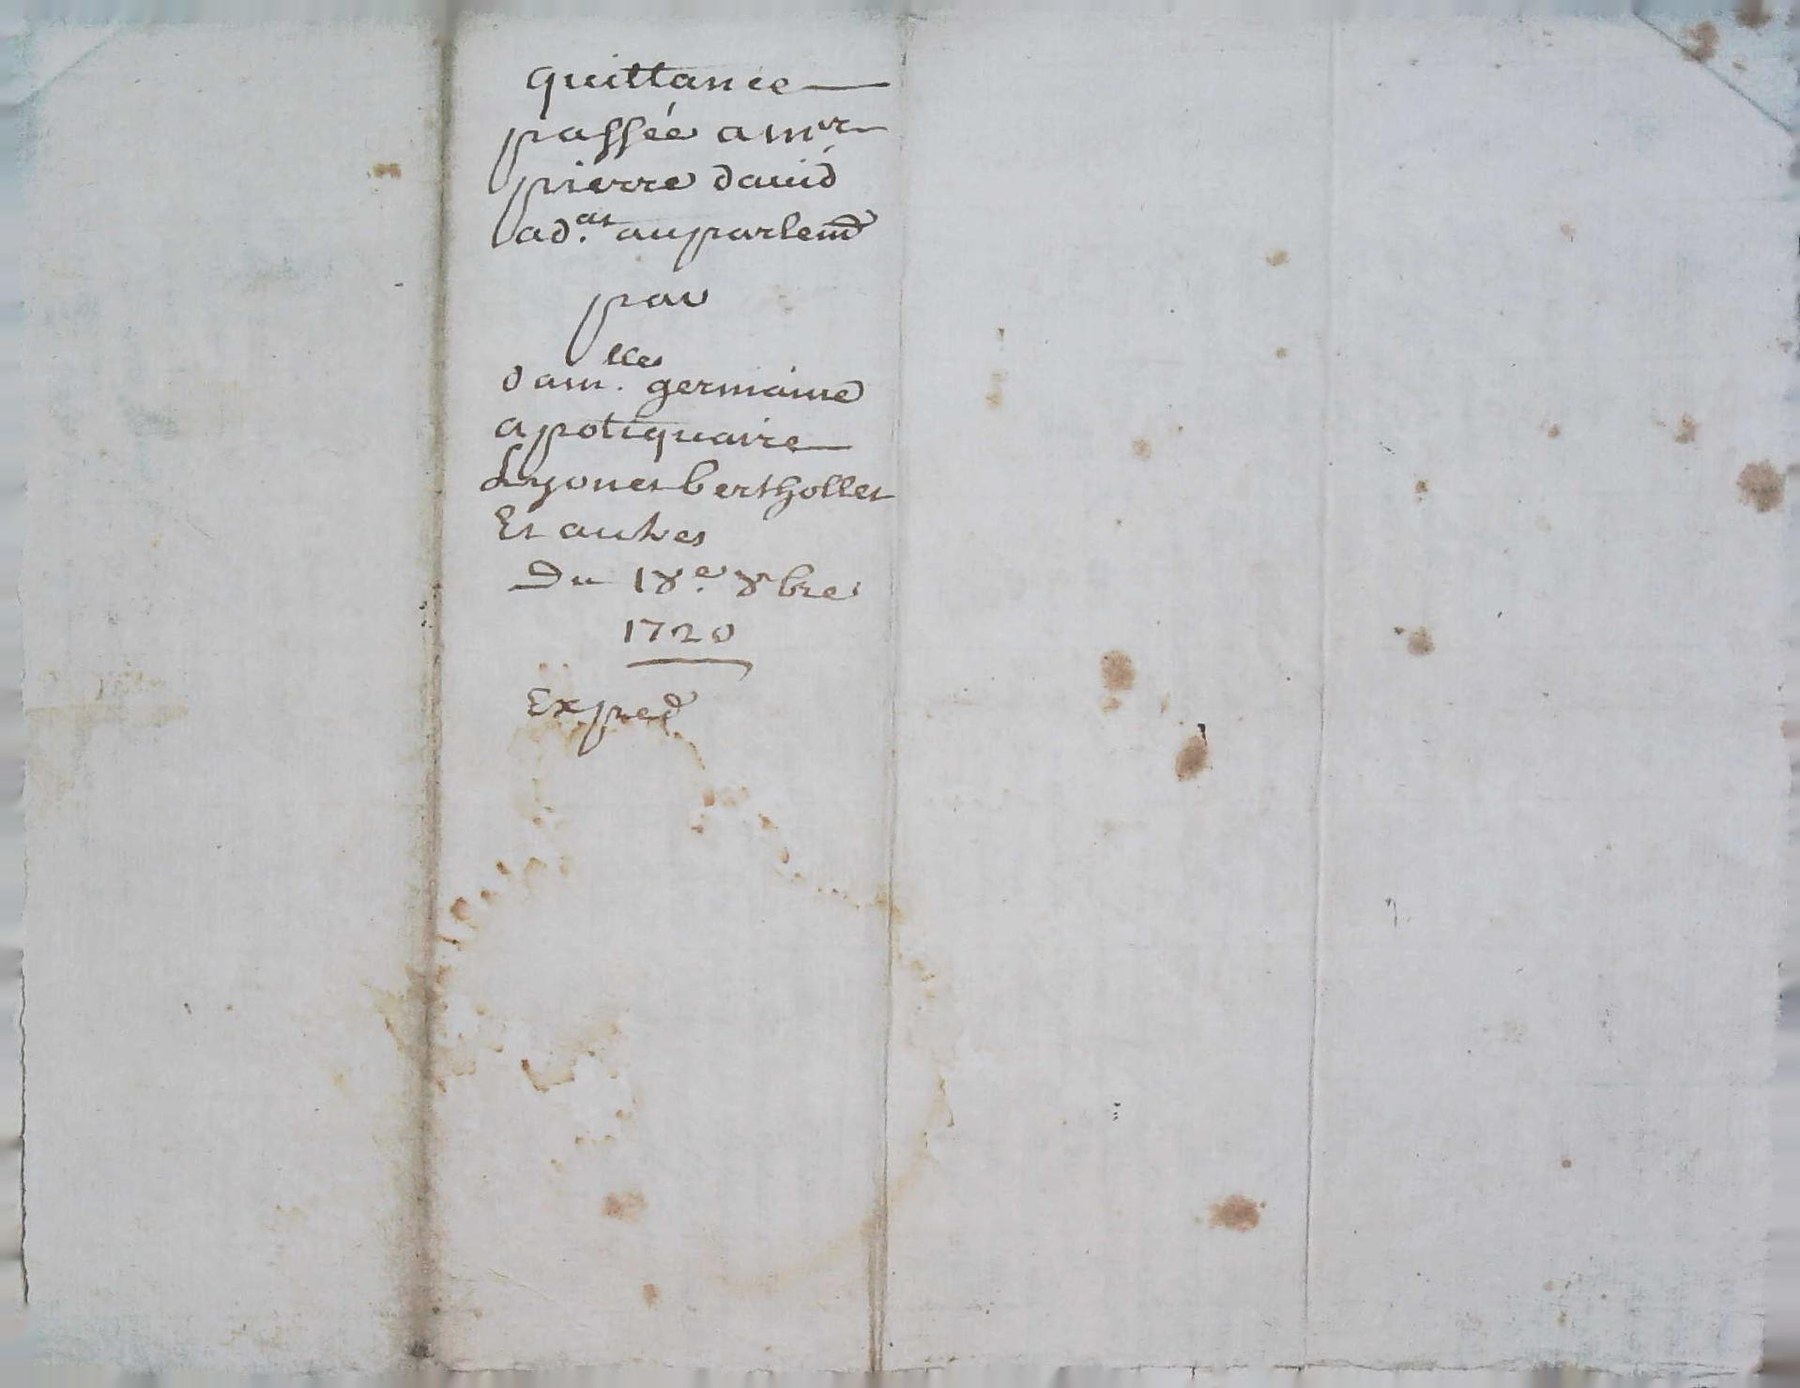 quittance
passée a mr
pierre david
ad.at au parlemt
par
dam.lles germaine
apotiquaire
Lyonet berthollet
Et autres
Du 18e. 8bre
1720
Exped